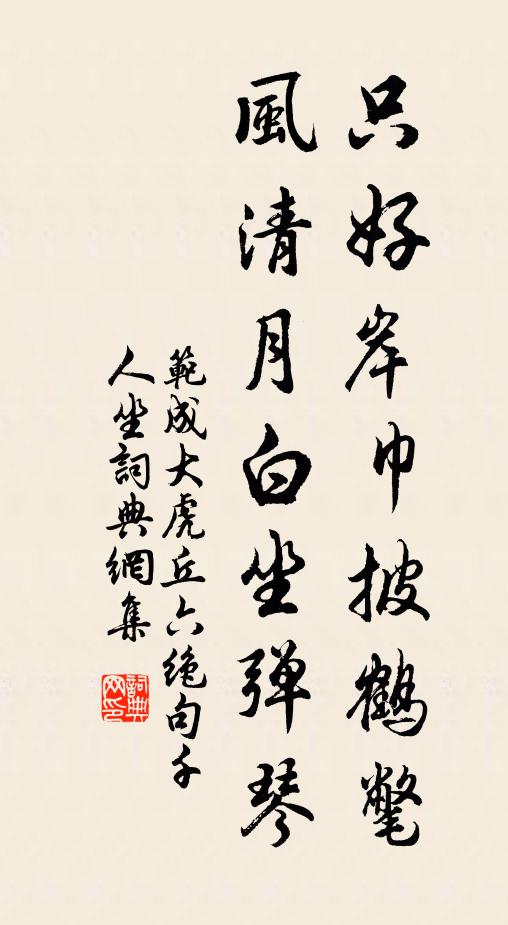 只好岸巾披鶴氅
風清月白坐弹琴
範成大虎丘六绝句千
人坐詞典網集
詞典
网印